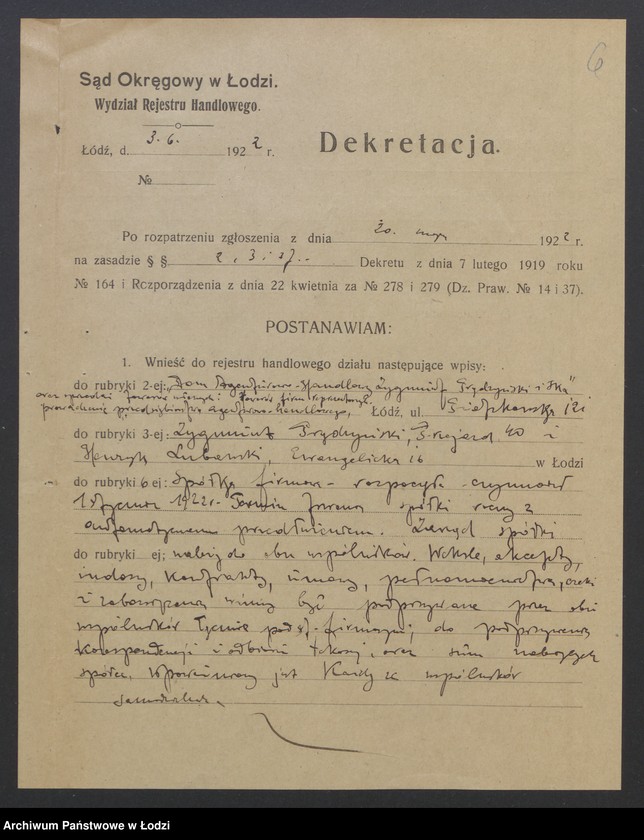 6
Sąd Okręgowy w Łodzi.
Wydział Rejestru Handlowego.
Łódź, d. 3. 6. 1922 r.
Dekretacja.
№
Po rozpatrzeniu zgłoszenia z dnia 20. maja 1922 r.
na zasadzie § § 2, 3 i Dekretu z dnia 7 lutego 1919 roku
№ 164 i Rozporządzenia z dnia 22 kwietnia za № 278 i 279 (Dz. Praw. № 14 i 37).
POSTANAWIAM:
1. Wnieść do rejestru handlowego działu następujące wpisy:
do rubryki 2-ej: „Dom Agenturowo-Handlowy Zygmunt Prydzyński i S-ka"
oraz sprzedaż towarów
prowadzenie przedsiębiorstwa agenturowo-handlowego, Łódź, ul. 121
do rubryki 3-ej: Zygmunt Prydzyński, Przejazd 40 i
Henryk Lubawski, Ewangelicka 16 w Łodzi
do rubryki 6 ej: Spółka firmowa rozpoczęła czynność
1 stycznia 1922 r. Termin trwania spółki roczny z
automatycznem przedłużeniem. Zarząd spółki
do rubryki ej; należy do obu wspólników. Weksle, akcepty,
indosy, kontrakty, umowy, pełnomocnictwa, czeki
i zobowiązania winny być podpisywane przez obu
wspólników łącznie pod st. firmowym; do podpisywania
korespondencji i odbioru takowej, oraz sum należnych
spółce upoważniony jest każdy ze wspólników
samodzielnie.
Archiwum Państwowe w Łodzi